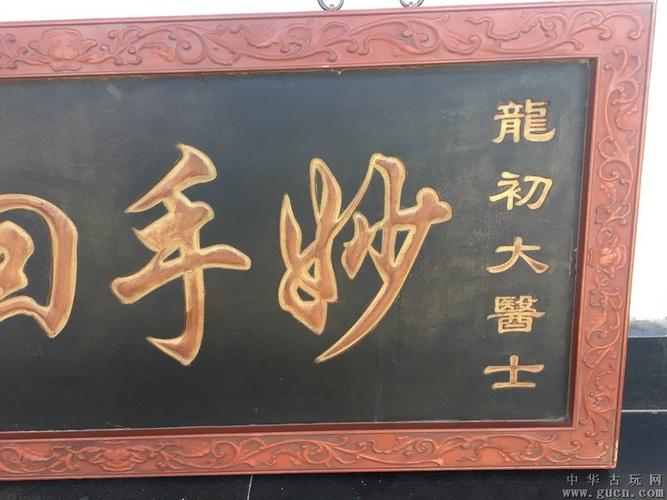 龍初大醫士
妙手回
中华古玩网
www.gucn.com